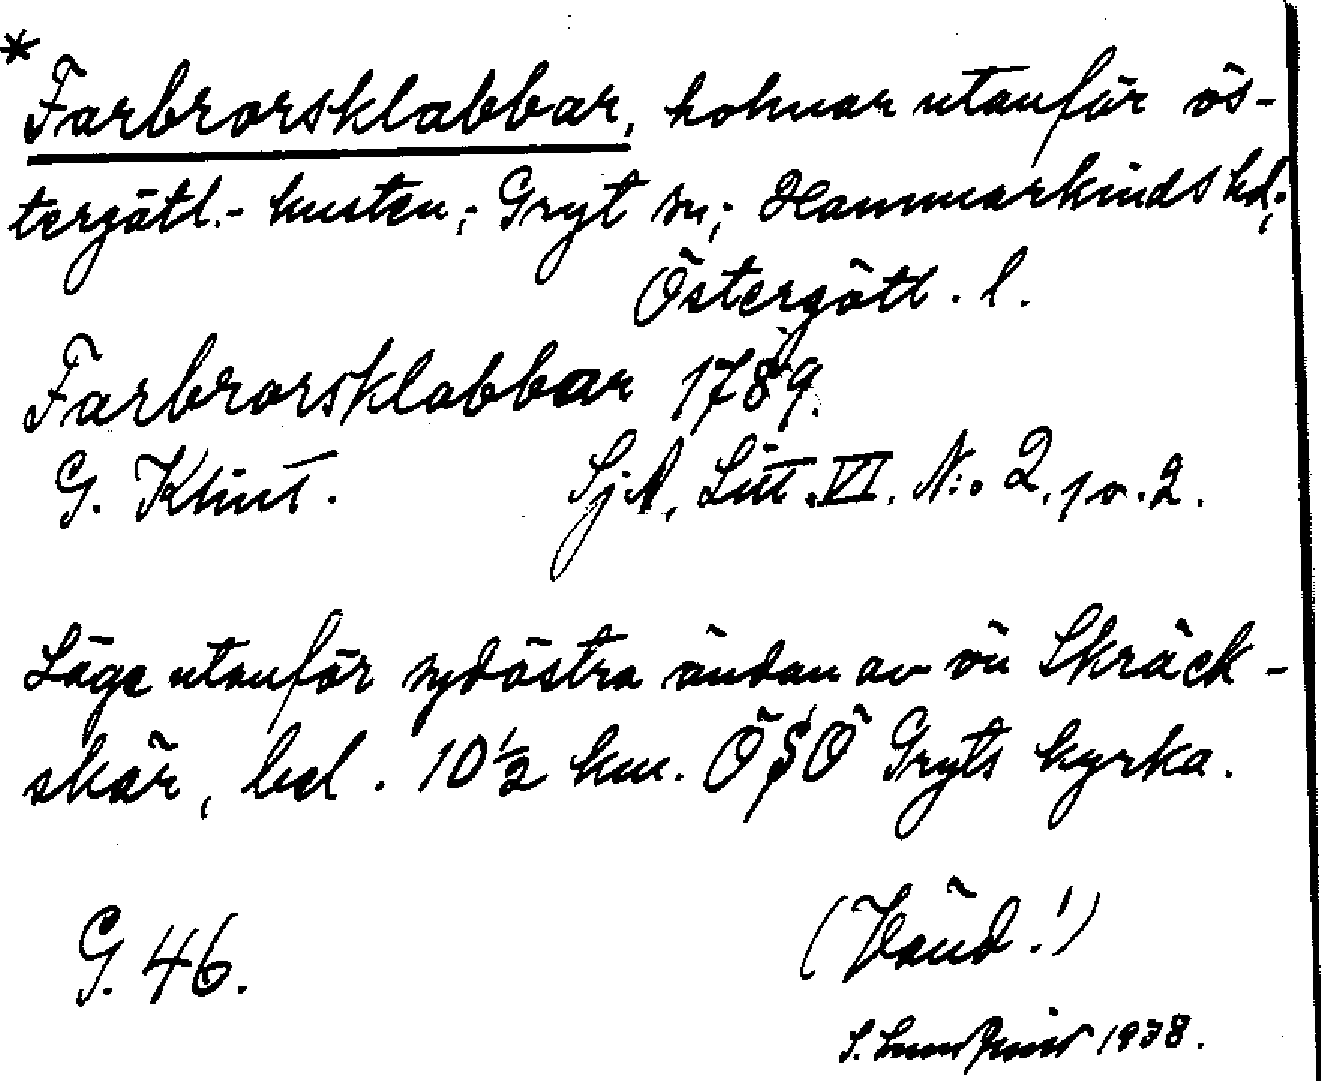 * Farbrorsklabbar, holmar utanför ös-
tergötl.- kusten; Gryt sn; Hammarkinds hd;
Östergötl. l.
Farbrorsklabbar 1789.
G. Klint. SjA, Litt. VI. N:o 2, p. 2.
Läge utanför sydöstra ändan av ön Skräck-
skär, bel. 10½ km. ÖSÖ Gryts kyrka.
G. 46. (Vänd!)
S. 1938.